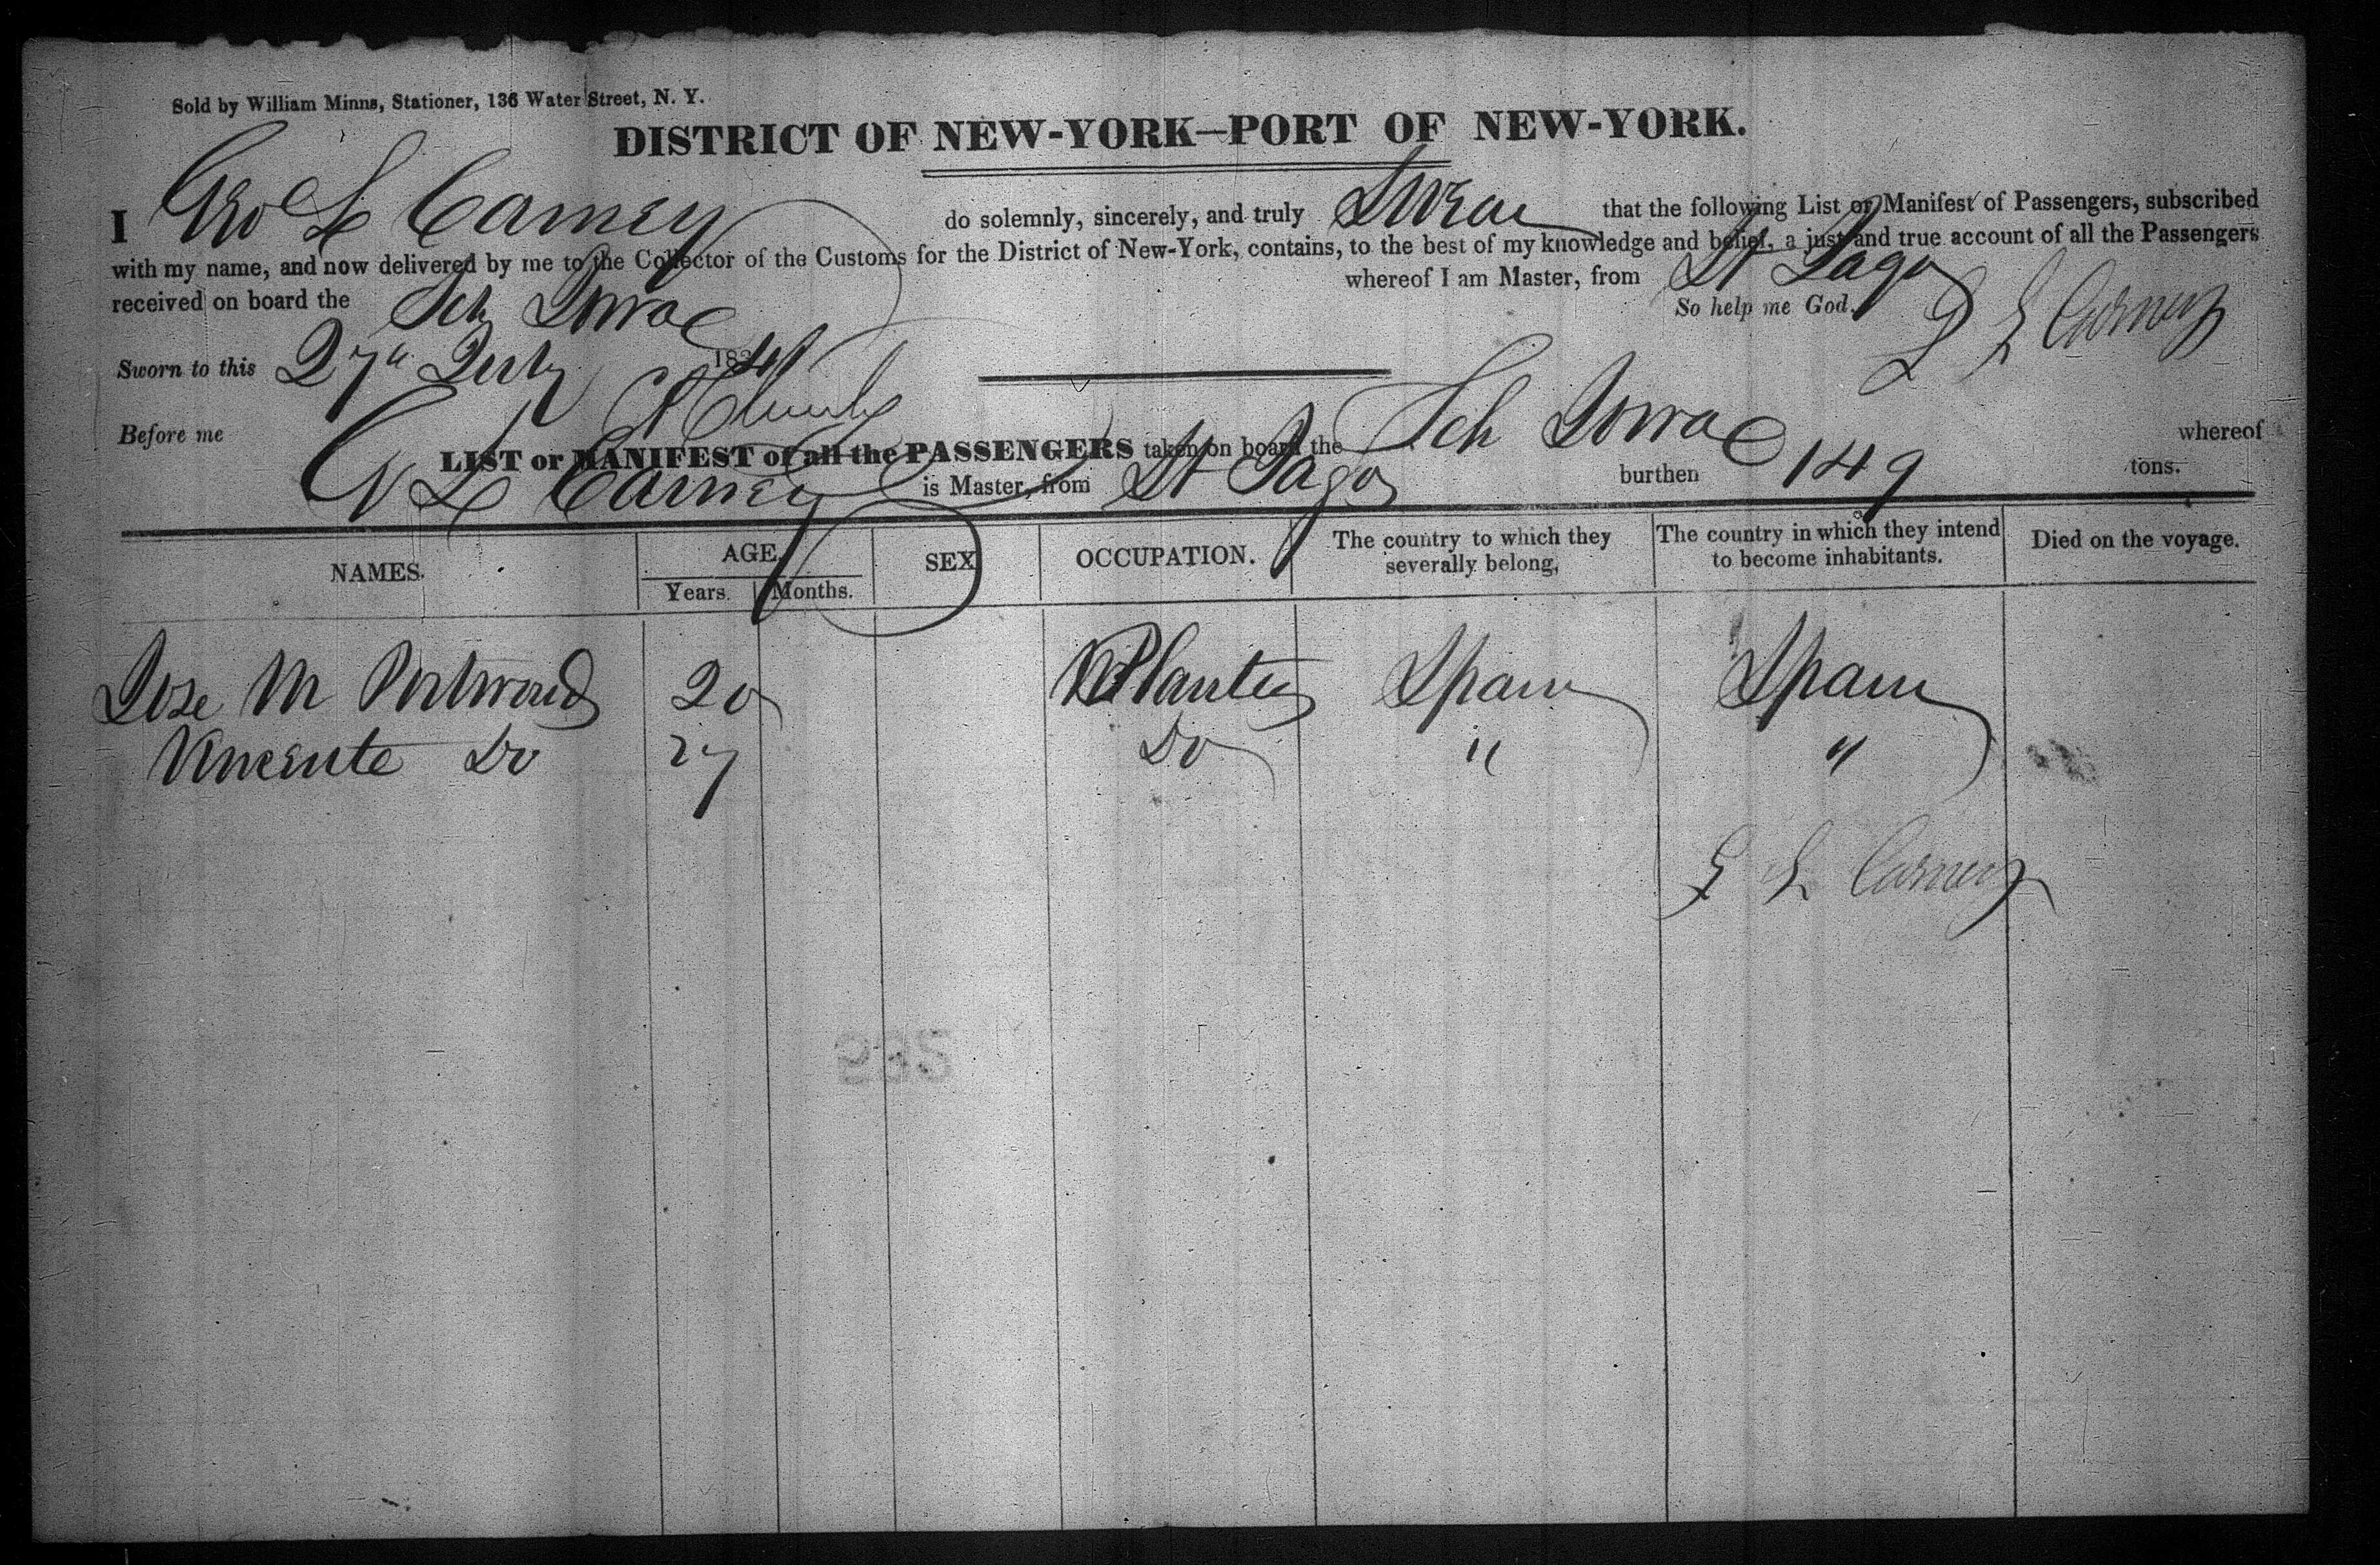 Sold by William Minns, Stationer, 136 Water Street, N. Y.
DISTRICT OF NEW-YORK—PORT OF NEW-YORK.
I Geo L Carney do solemnly, sincerely, and truly Swear that the following List or Manifest of Passengers, subscribed
with my name, and now delivered by me to the Collector of the Customs for the District of New-York, contains, to the best of my knowledge and belief, a just and true account of all the Passengers
received on board the Sch Iowa whereof I am Master, from St Iago
So help me God. G L Carney
Sworn to this 27th July 1841
Before me
LIST or MANIFEST of all the PASSENGERS taken on board the Sch Iowa whereof
G L Carney is Master, from St Iago burthen 149 tons.
NAMES. AGE. SEX OCCUPATION. The country to which they severally belong, The country in which they intend to become inhabitants. Died on the voyage.
Years. Months.
Jose M 20 Planter Spain Spain
Vincente Do 27 Do " "
G L Carney